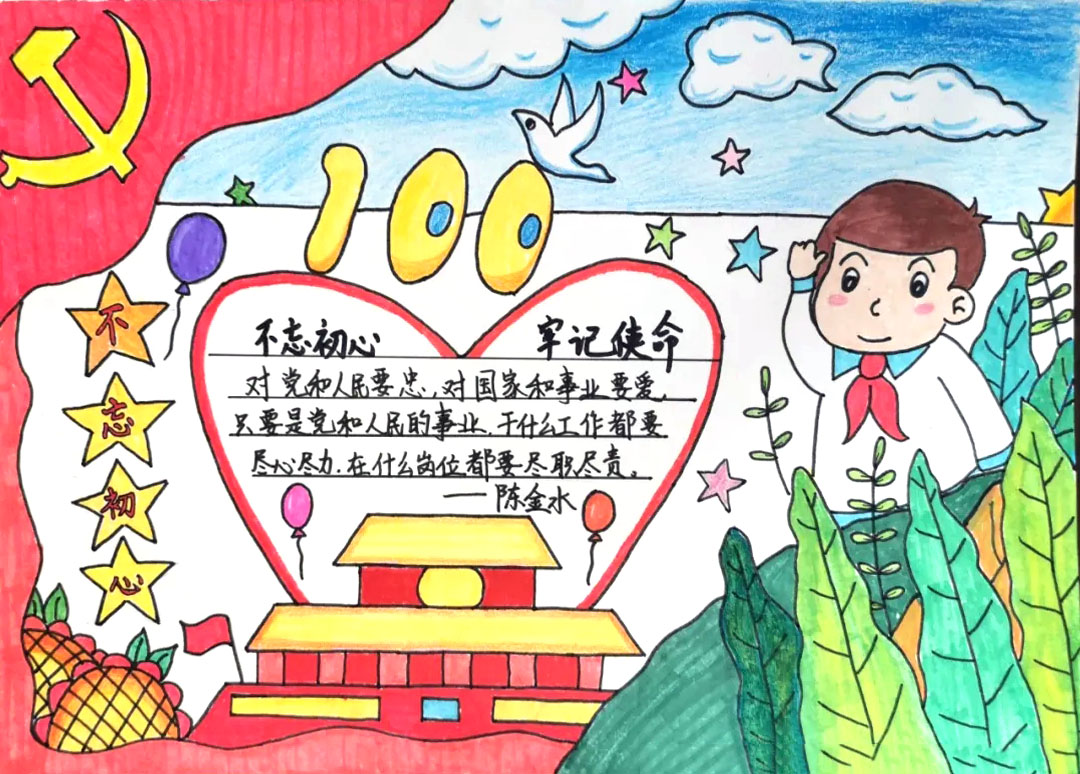 100
不
忘
初
心
不忘初心 牢记使命
对党和人民要忠,对国家和事业要爱,
只要是党和人民的事业,干什么工作都要
尽心尽力,在什么岗位都要尽职尽责。
——陈金水